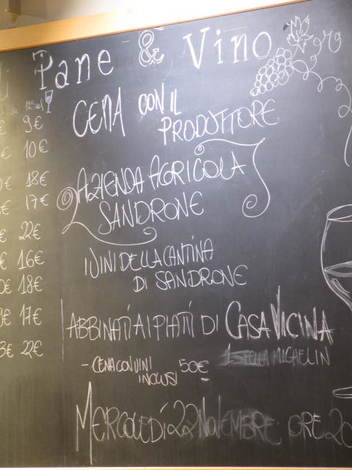 Pane & Vino
CENA CON IL
PRODUTTORE
AZIENDA AGRICOLA
SANDRONE
I VINI DELLA CANTINA
DI SANDRONE
ABBINATI AI PIATTI DI CASA VICINA
1 STELLA MICHELIN
- CENA CON VINI 50€
INCLUSI
MERCOLEDÌ 22 NOVEMBRE ORE 20
9€
10€
18€
17€
22€
16€
18€
17€
22€